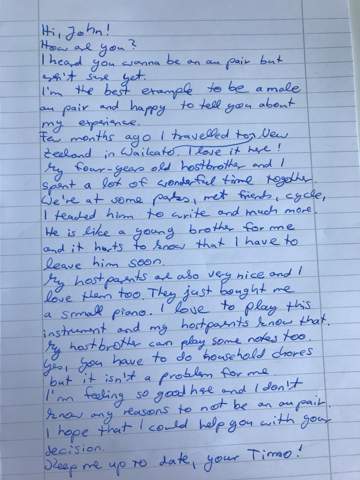 Hi, John!
How are you?
I heard you wanna be an au pair but
aren't sure yet.
I'm the best example to be a male
au pair and happy to tell you about
my experience.
Few months ago I travelled to New
Zealand in Waikato. I love it here!
My four-years old hostbrother and I
spent a lot of wonderful time together.
We're at some parks, met friends, cycle,
I teached him to write and much more.
He is like a young brother for me
and it hurts to know that I have to
leave him soon.
My hostparents are also very nice and I
love them too. They just bought me
a small piano. I love to play this
instrument and my hostparents know that.
My hostbrother can play some notes too.
Yes, you have to do household chores
but it isn't a problem for me
I'm feeling so good here and I don't
know any reasons to not be an au pair.
I hope that I could help you with your
decision.
Keep me up to date, your Timo!